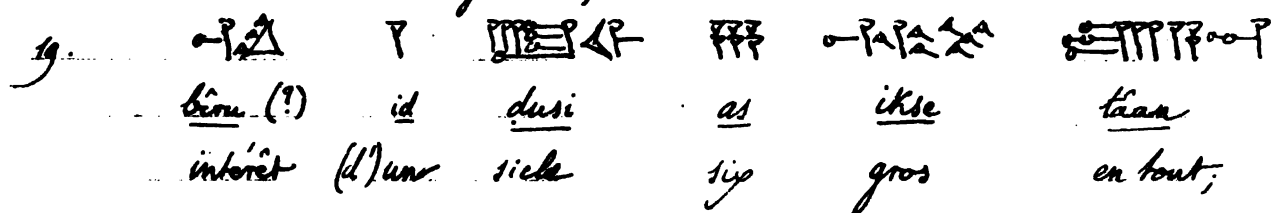 19. 𒁹 𒐋
bîru (?) id dusi as ikse táan
intérêt (d')un sicle six gros en tout;